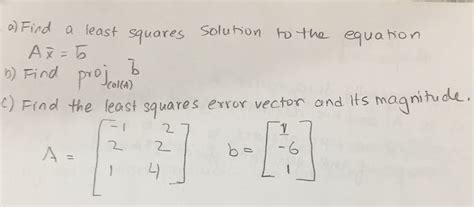 a) Find a least squares solution to the equation
Ax̄ = b̄
b) Find proj_col(A) b̄
c) Find the least squares error vector and its magnitude.
A = [-1 2
2 2
1 4]
b = [
-6
1]